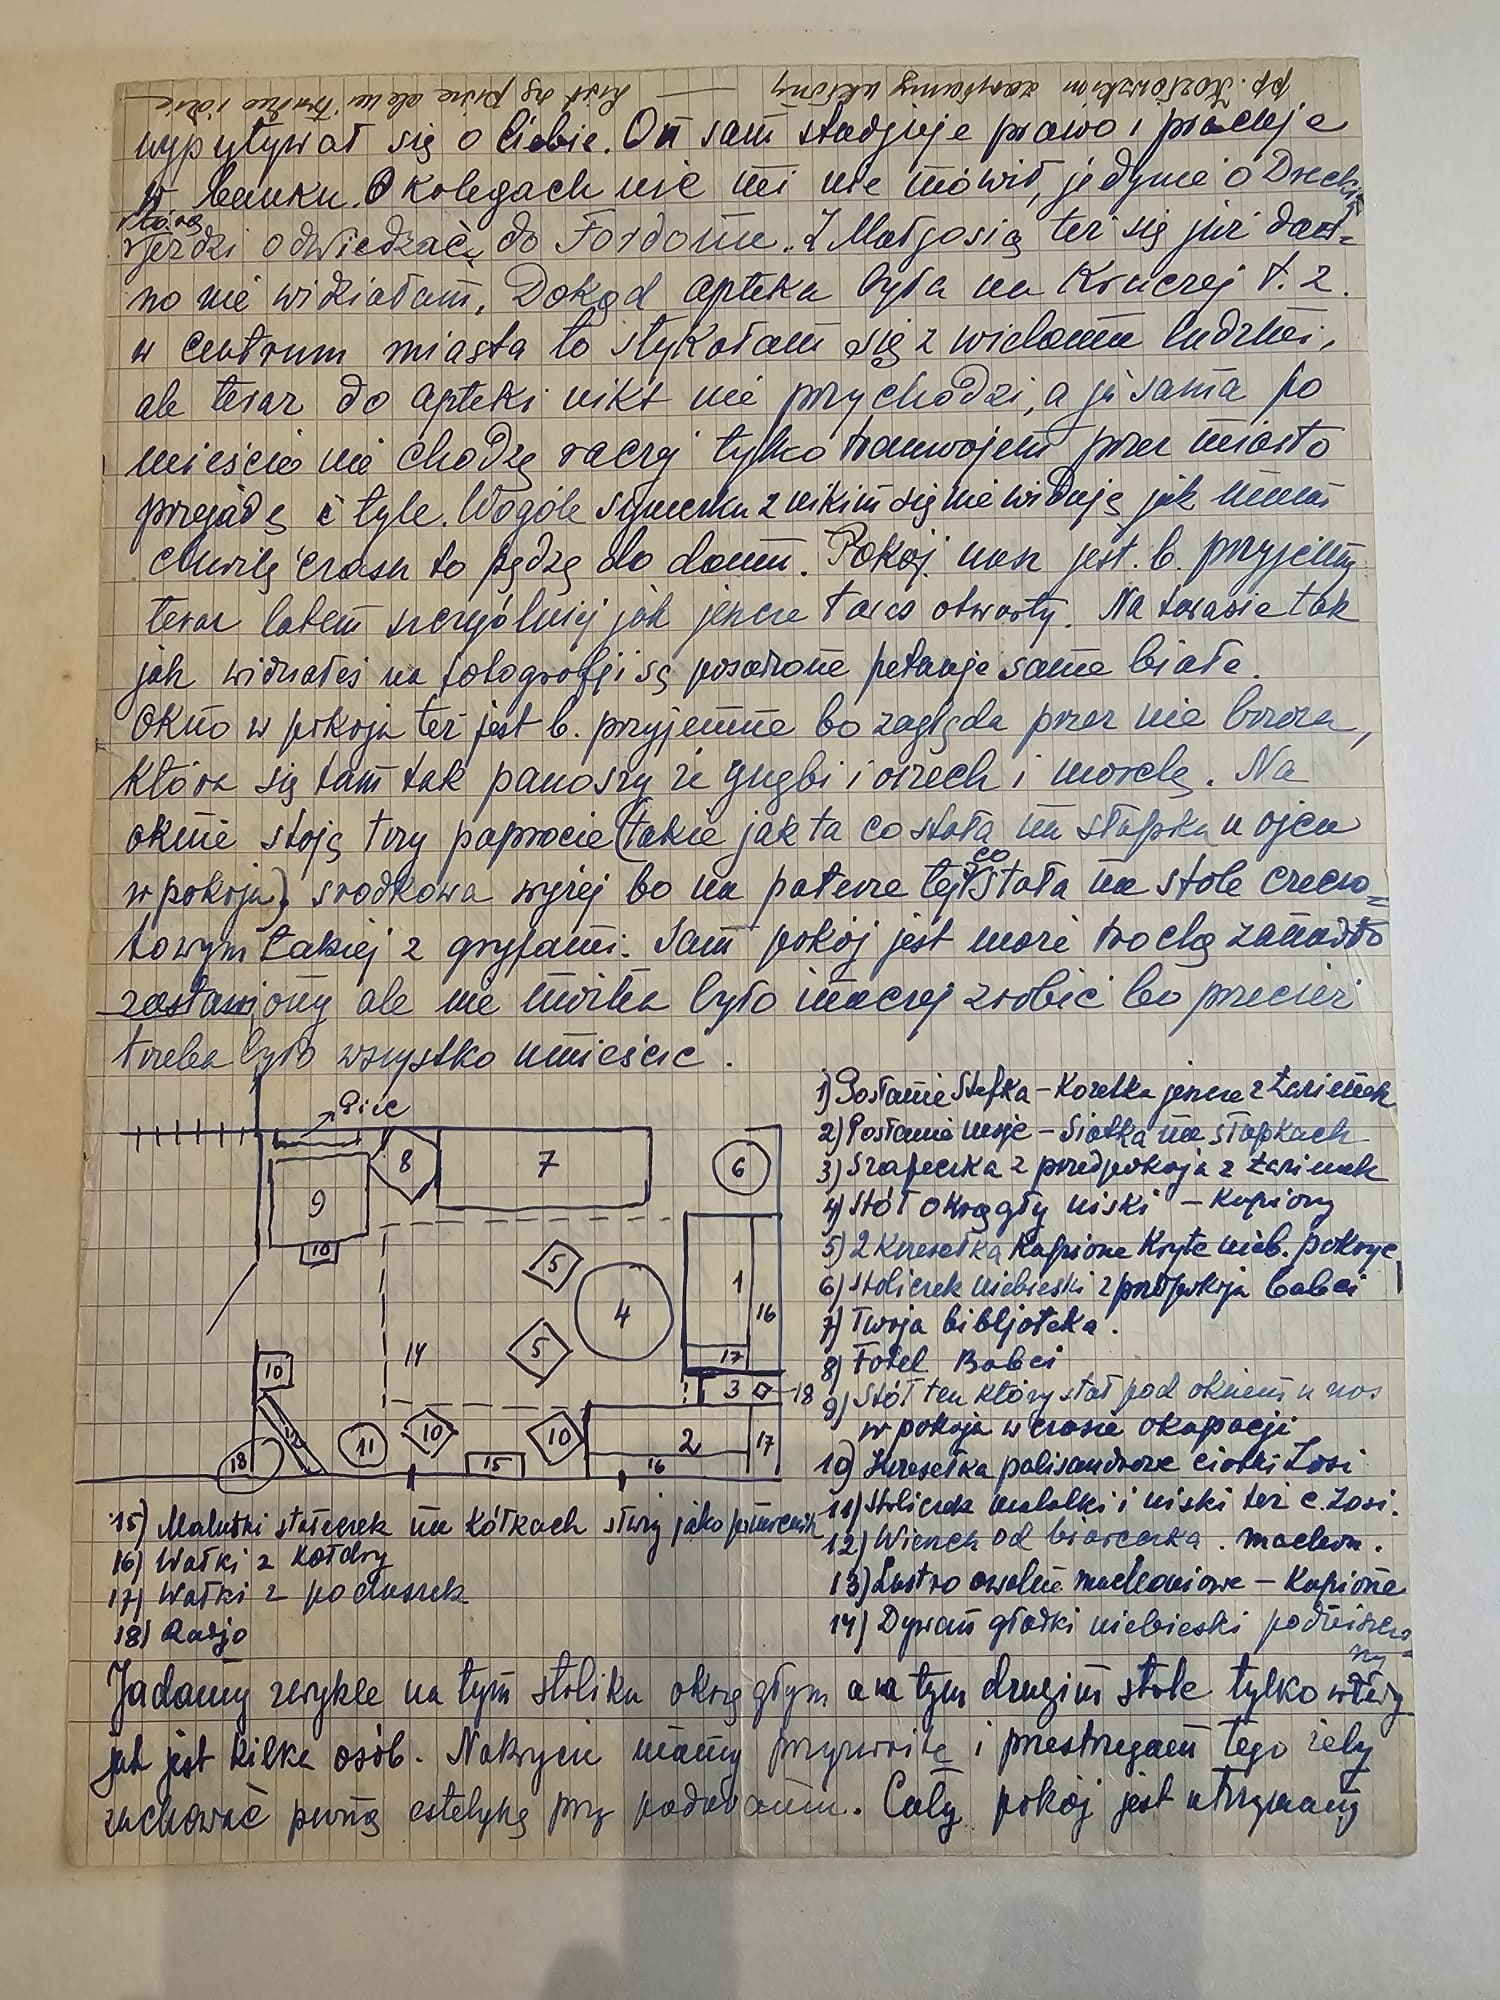 pp. Kozłowskim zasyłamy ukłony — list ten piszę ale na trudno idzie
wypytywał się o Ciebie. On sam studjuje prawo i pracuje
w banku. O kolegach nic mi nie mówił, jedynie o
którą
jeździ odwiedzać do Fordonu. Z Małgosią też się już daw=
no nie widziałam. Dokąd apteka była na Kruczej t. z.
w centrum miasta to stykałam się z wieloma ludźmi,
ale teraz do apteki nikt nie przychodzi, a ja sama po
mieście nie chodzę raczej tylko tramwajem przez miasto
przejadę i tyle. Wogóle syneczku z nikim się nie widuję jak mam
chwilę czasu to pędzę do domu. Pokój nasz jest b. przyjemny
teraz latem szczególniej jak jeszcze taras otwarty. Na tarasie tak
jak widziałeś na fotografji są posadzone petunje same białe.
Okno w pokoju też jest b. przyjemne bo zagląda przez nie brzoza,
która się tam tak panoszy że gnębi i orzech i morelę. Na
oknie stoją trzy paprocie (takie jak ta co stała na słupku u ojca
w pokoju), środkowa wyżej bo na paterze tej co stała na stole czeczo=
towym takiej z gryfami. Sam pokój jest może trochę zanadto
zastawiony ale nie można było inaczej zrobić bo przecież
trzeba było wszystko umieścić.
Piec
9
8
7
6
10
5
4
1
16
5
17
14
3
18
10
18
12
11
10
15
10
2
16
17
1) Posłanie Stefka – Kozetka jeszcze z Łazienek
2) Posłanie moje – Siatka na słupkach
3) Szafeczka z przedpokoja z Łazienek
4) Stół okrągły niski – Kupiony
5) 2 Krzesełka Kupione Kryte nieb. pokryc
6) Stoliczek niebieski z przedpokoja babci
7) Twoja bibljoteka.
8) Fotel Babci
9) Stół ten który stał pod oknem u nas
w pokoju w czasie okupacji
10) Krzesełka palisandrowe cioci Zosi
11) Stoliczek malutki i niski też c. Zosi.
12) Wierzch od biureczka. machon.
13) Lustro owalne machoniowe – Kupione
14) Dywan gładki niebieski podniszczo=
ny
15) Malutki stołeczek na kółkach służy jako pomocnik
16) Wałki z kołdry
17) Wałki z poduszek
18) Radjo
Jadamy zwykle na tym stoliku okrągłym a na tym drugim stole tylko wtedy
jak jest kilka osób. Nakrycie mamy przyzwoite i przestrzegam tego żeby
zachować pewną estetykę przy podawaniu. Cały pokój jest utrzymany